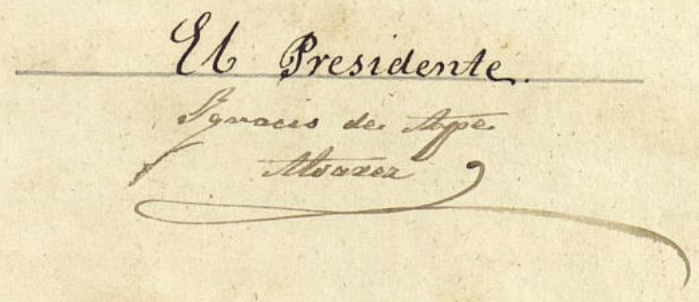 El Presidente.
Ignacio de
Alvarez